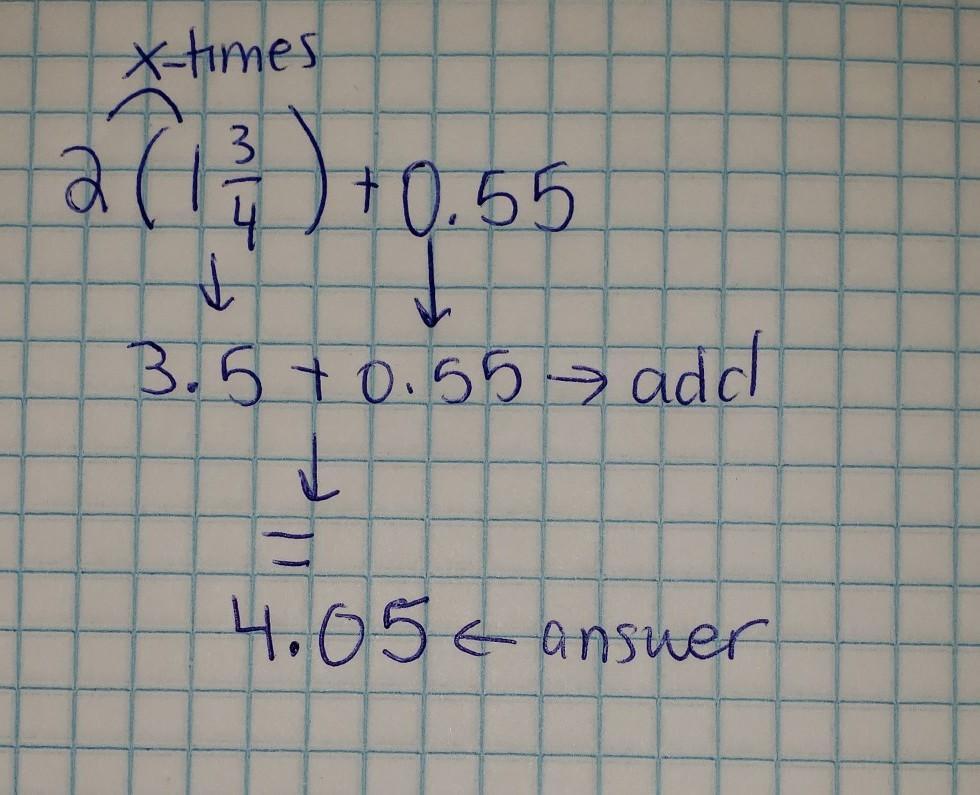 x-times
2(1 3/4) + 0.55
↓ ↓
3.5 + 0.55 → add
↓
=
4.05 ← answer